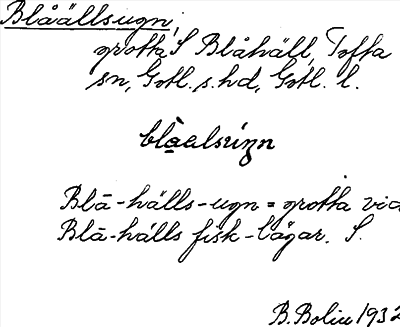 Blåällsugn,
grotta S Blåhäll, Tofta
sn, Gotl. s. hd, Gotl. l.
blàelsúgn
Blā-hälls-ugn = grotta vid
Blā-hälls fisk-lägar. S.
B. Bolin 1932